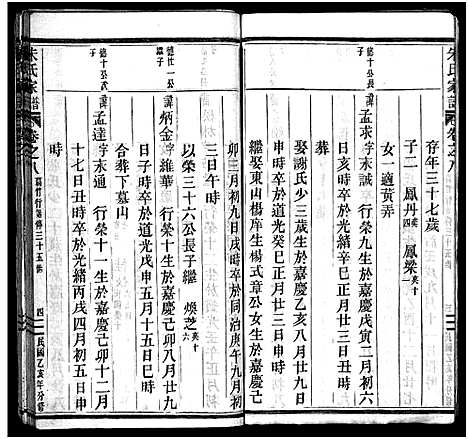 朱氏家譜
存年三十七歲
子二 鳳丹 鳳梁
女一適黃弄
德十公長子
諱孟求字末誠 行榮九生於嘉慶戊寅二月初六
日亥時卒於光緒辛巳正月廿三日丑時
葬
娶謝氏少三大生於嘉慶乙亥八月廿九日
申時卒於道光癸巳正月廿三日申時
繼娶東山楊岸生楊式章公女生於嘉慶己
卯三月初九日戌時卒於同治庚午九月初
三日午時
以榮三十六公長子繼 煥芝
德廿一公繼子
諱炳金字維華 行榮十生於嘉慶己卯八月廿九
日子時卒於道光戊申五月十五日巳時
合葬下墓山
德十公次子
諱孟達字末通 行榮十一生於嘉慶己卯十二月
十七日丑時卒於光緒丙戌四月初五日申
時
朱氏家譜
卷之八
四
民國乙亥年分修